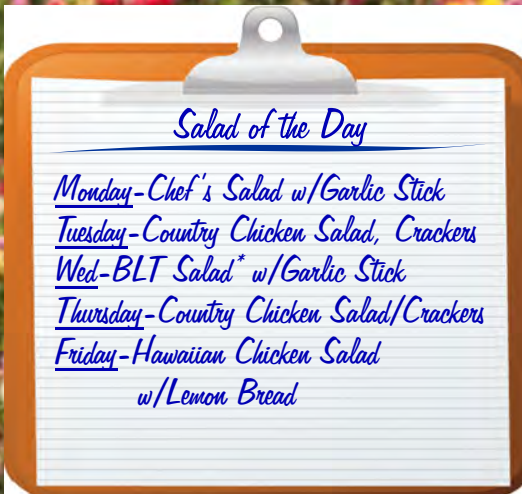 Salad of the Day
Monday-Chef's Salad w/Garlic Stick
Tuesday-Country Chicken Salad, Crackers
Wed-BLT Salad* w/Garlic Stick
Thursday-Country Chicken Salad/Crackers
Friday-Hawaiian Chicken Salad
w/Lemon Bread